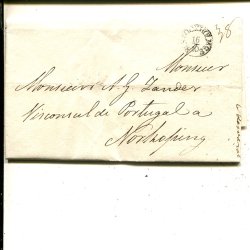 38
Monsieur
Monsieur A. G. Zander
Viceconsul de Portugal a
Norrkoping